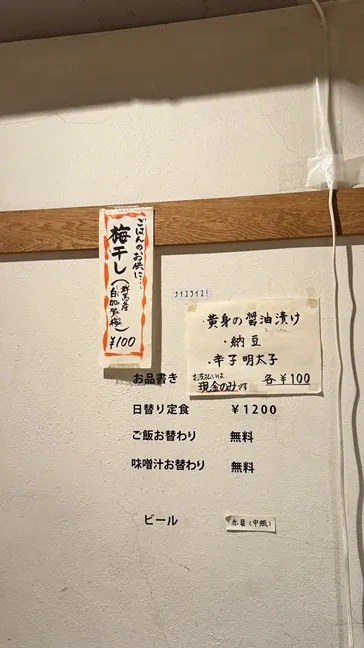 ごはんのお供に…
梅干し
(群馬産
白加賀梅)
¥100
ナイスライス!
・黄身の醤油漬け
・納豆
・辛子明太子
各¥100
お支払いは、
現金のみです
お品書き
日替り定食 ¥1200
ご飯お替わり 無料
味噌汁お替わり 無料
ビール 赤星(中瓶)